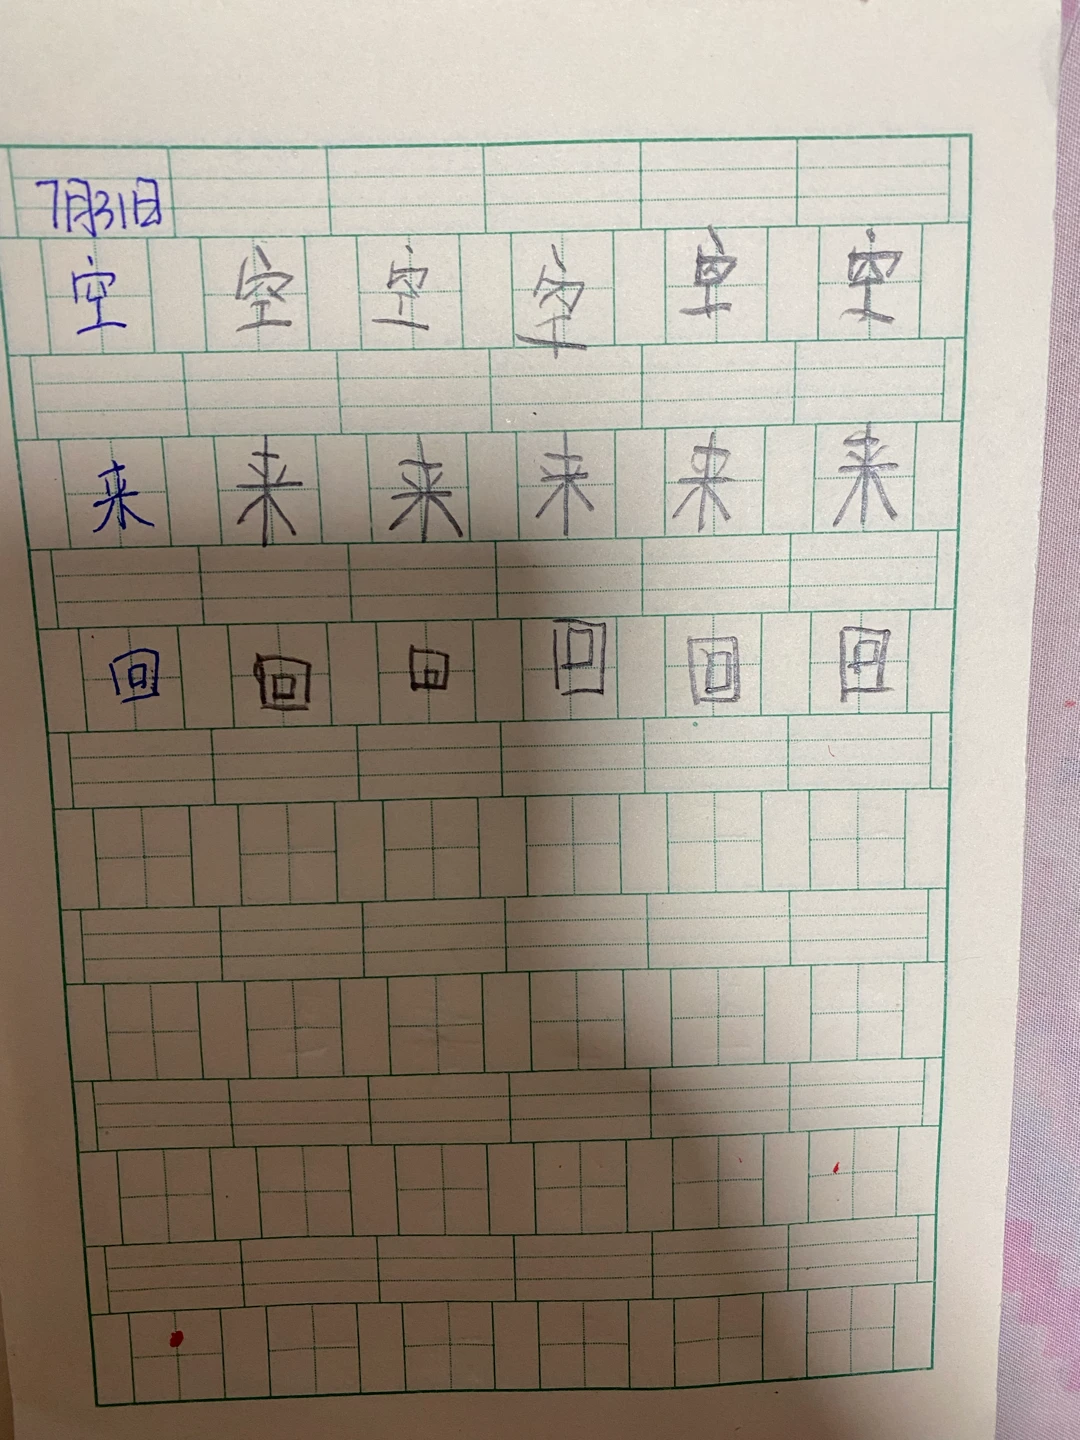 7月31日
空 空 空 空 空 空
来 来 来 来 来 来
回 回 回 回 回 回